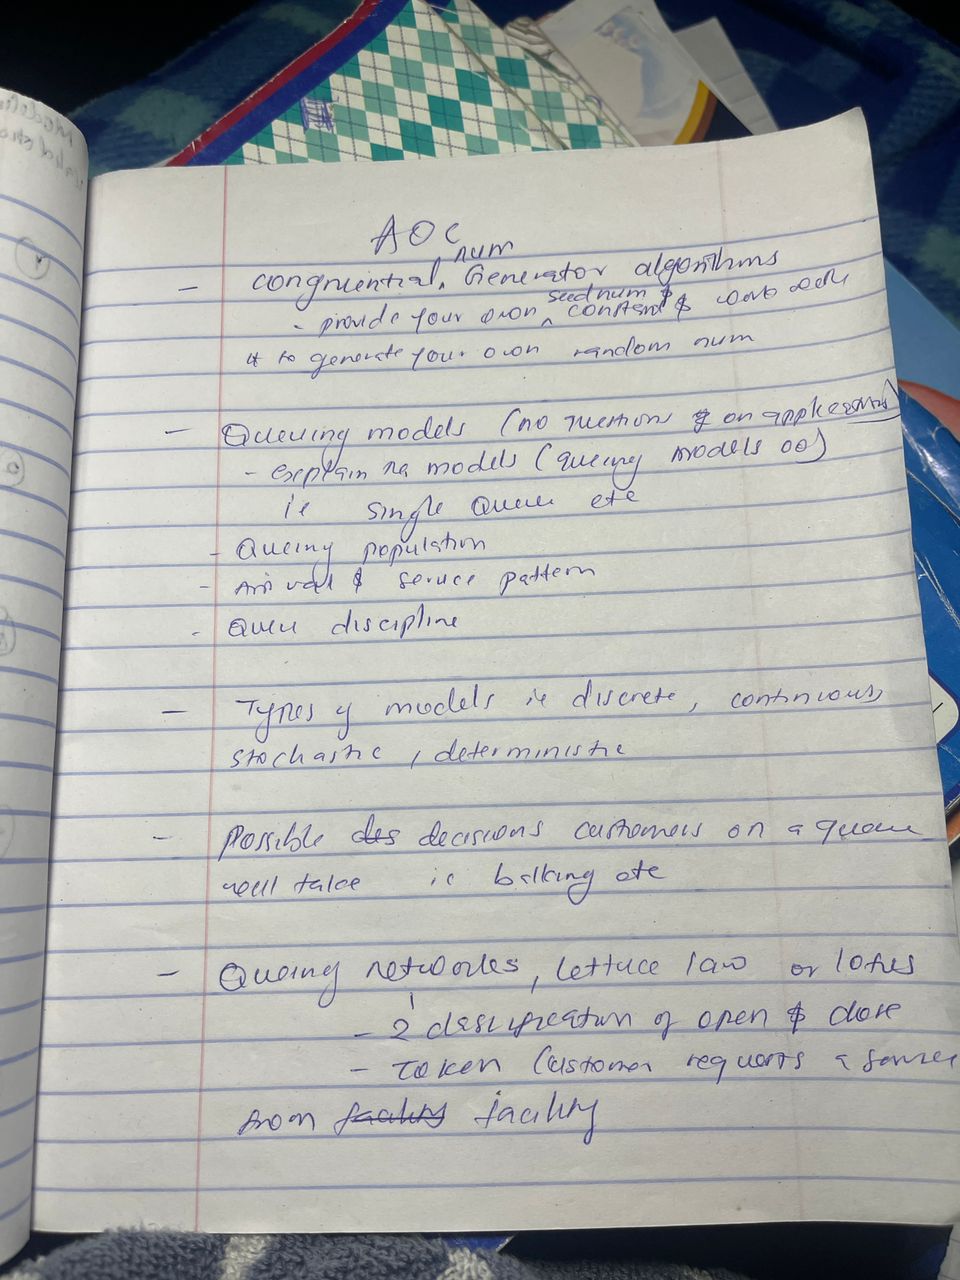 AOC
- congruential num Generator algorithms
- provide your own seed num constant & work
to generate your own random num
- Queuing models (no questions on
- explain models (queing models
ie single Queue etc
- Queing population
- Arrival & service pattern
- Queu discipline
- Types of models ie discrete, continuous,
stochastic, deterministic
- Possible des decisions customers on a queue
will take ie balking etc
- Queing networks, lettuce law or lotus
- 2 classification of open & close
- Token Customer requests a service
from facility facility